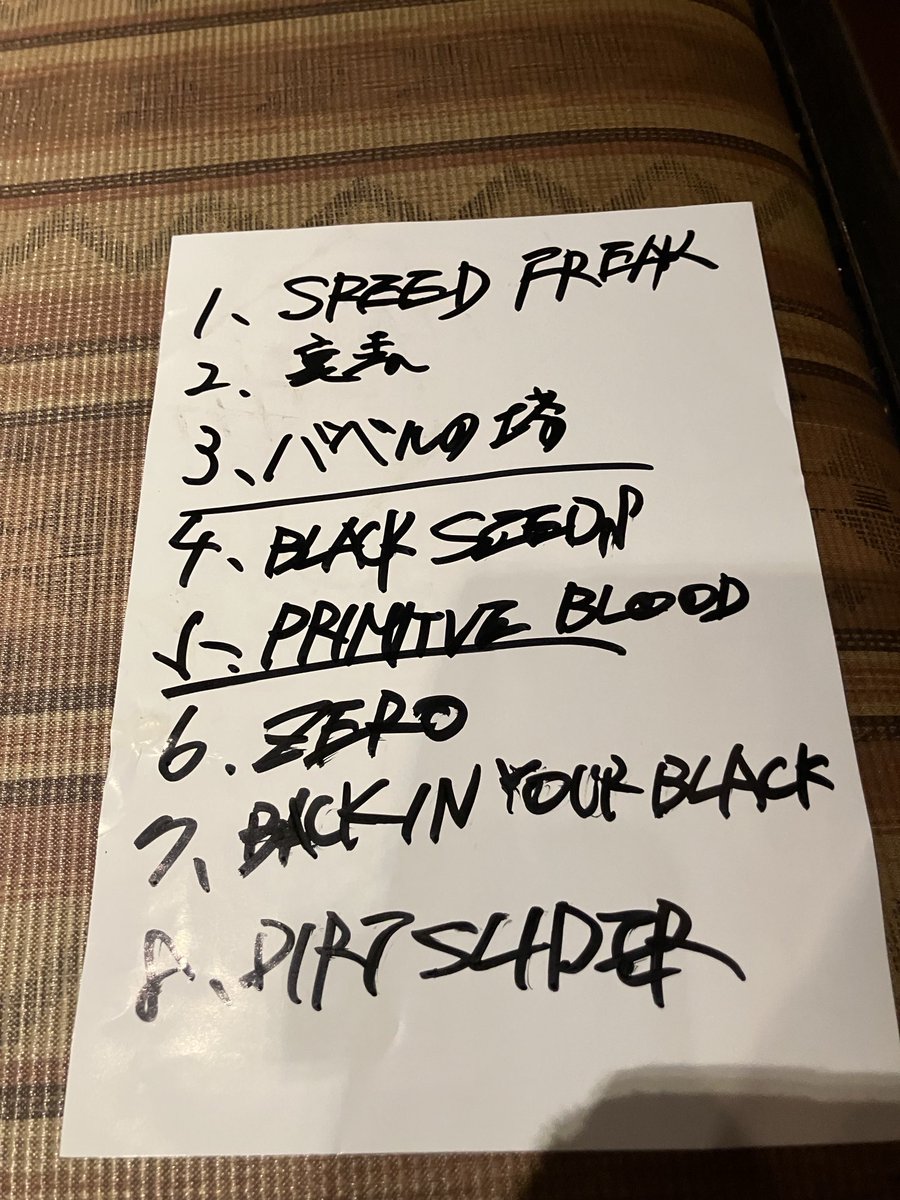 1、SPEED FREAK
2、
3、バベルの塔
4、BLACK
5、PRIMITIVE BLOOD
6、ZERO
7、BACK IN YOUR BLACK
8、DIRT SLIDER